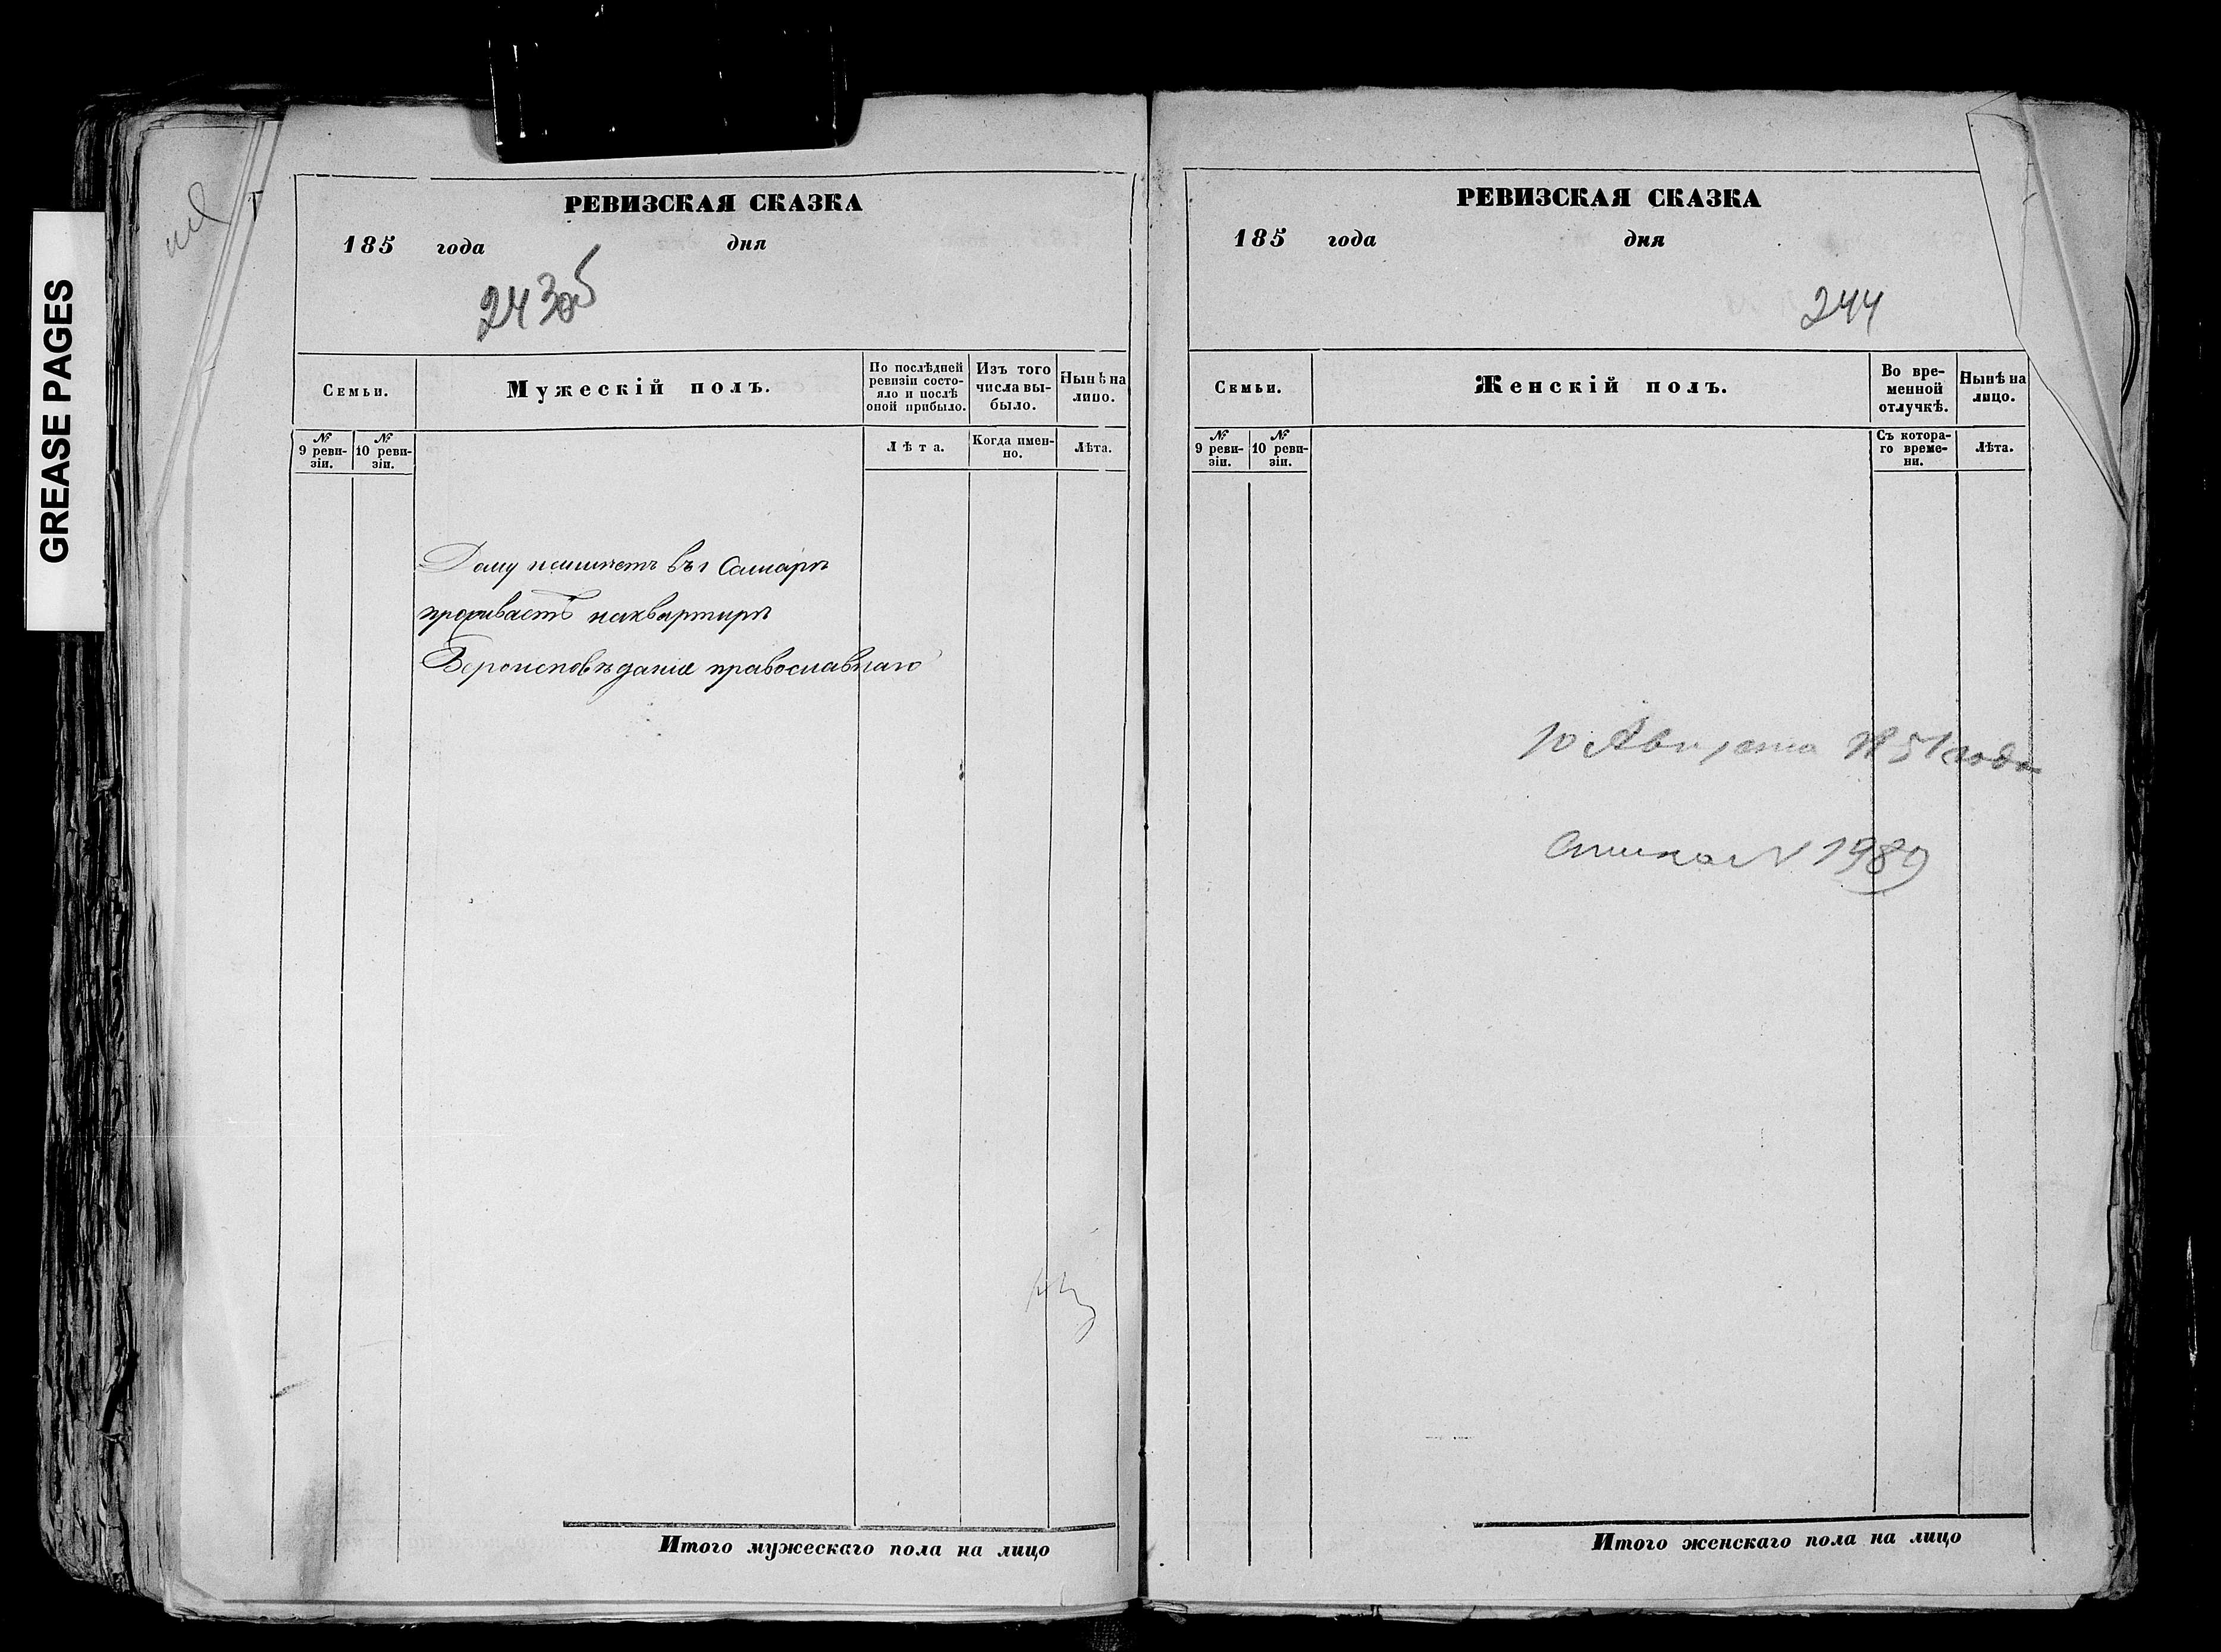 GREASE PAGES
РЕВИЗСКАЯ СКАЗКА
185 года дня
243об
Семьи.
Мужескій полъ.
По послѣдней ревизіи состо-
яло и послѣ
оной прибыло.
Изъ того
числа вы-
было.
Нынѣ на
лицо.
№
9 реви-
зіи.
№
10 реви-
зіи.
Лѣта.
Когда имен-
но.
Лѣта.
Дому неимѣетъ въ г Самарѣ
проживаетъ наквартирѣ
Вероисповѣданія православнаго
Итого мужескаго пола на лицо
РЕВИЗСКАЯ СКАЗКА
185 года дня
244
Семьи.
Женскій полъ.
Во вре-
менной
отлучкѣ.
Нынѣ на
лицо.
№
9 реви-
зіи.
№
10 реви-
зіи.
Съ котора-
го време-
ни.
Лѣта.
10 Августа года
N 1989
Итого женскаго пола на лицо